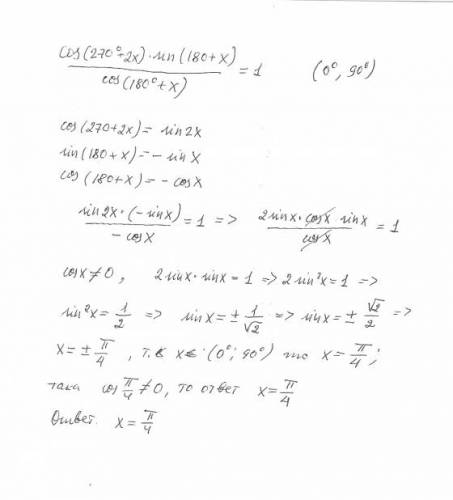 cos(270°+2x)·sin(180+x) / cos(180°+x) = 1 (0°, 90°)
cos(270+2x) = sin2x
sin(180+x) = - sinx
cos(180+x) = - cosx
sin2x·(-sinx) / -cosx = 1 => 2sinx·cosx sinx / cosx = 1
cosx≠0, 2sinx·sinx=1 => 2sin²x=1 =>
sin²x = 1/2 => sinx = ± 1/√2 => sinx = ± √2/2 =>
x = ± π/4, т.к x∈ (0°; 90°) то x = π/4;
така cos π/4 ≠0, то ответ x = π/4
Ответ. x = π/4